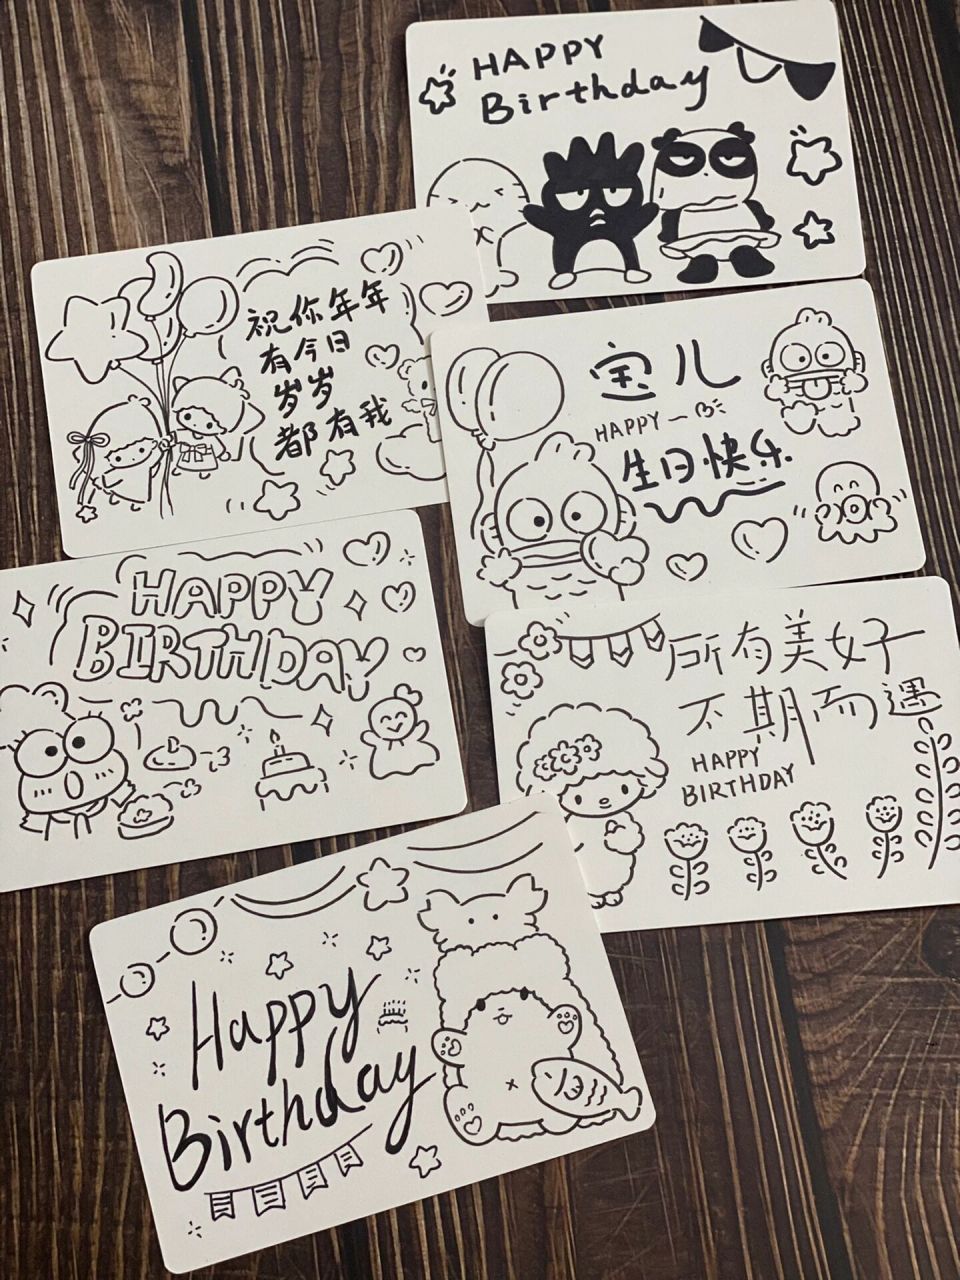 HAPPY
Birthday
祝你年年
有今日
岁岁
都有我
宝儿
HAPPY
生日快乐
HAPPY
BIRTHDAY
所有美好
不期而遇
HAPPY
BIRTHDAY
Happy
Birthday